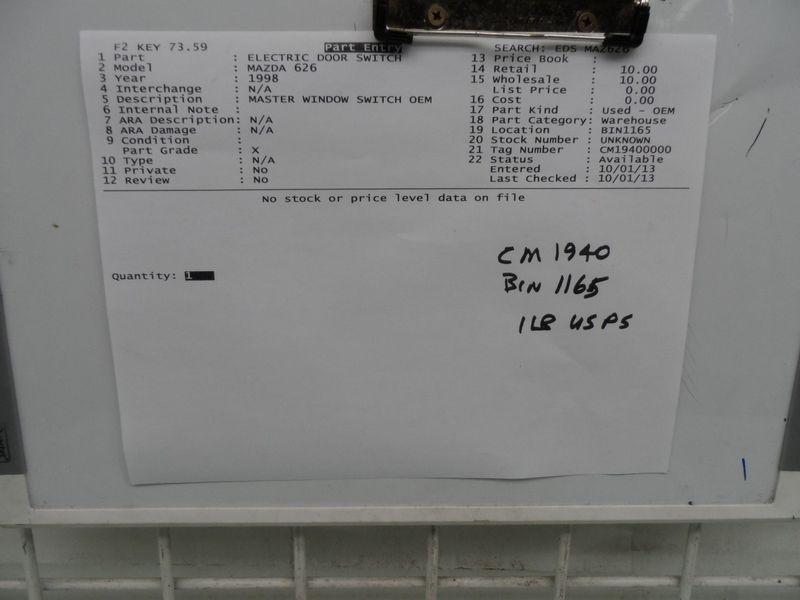 F2 KEY 73.59 Part Entry SEARCH: EDS MAZ626
1 Part : ELECTRIC DOOR SWITCH 13 Price Book :
2 Model : MAZDA 626 14 Retail : 10.00
3 Year : 1998 15 Wholesale : 10.00
4 Interchange : N/A List Price : 0.00
5 Description : MASTER WINDOW SWITCH OEM 16 Cost : 0.00
6 Internal Note : 17 Part Kind : Used - OEM
7 ARA Description: N/A 18 Part Category: Warehouse
8 ARA Damage : N/A 19 Location : BIN1165
9 Condition : 20 Stock Number : UNKNOWN
Part Grade : X 21 Tag Number : CM19400000
10 Type : N/A 22 Status : Available
11 Private : No Entered : 10/01/13
12 Review : No Last Checked : 10/01/13
No stock or price level data on file
CM 1940
Quantity: 1
BIN 1165
1LB USPS